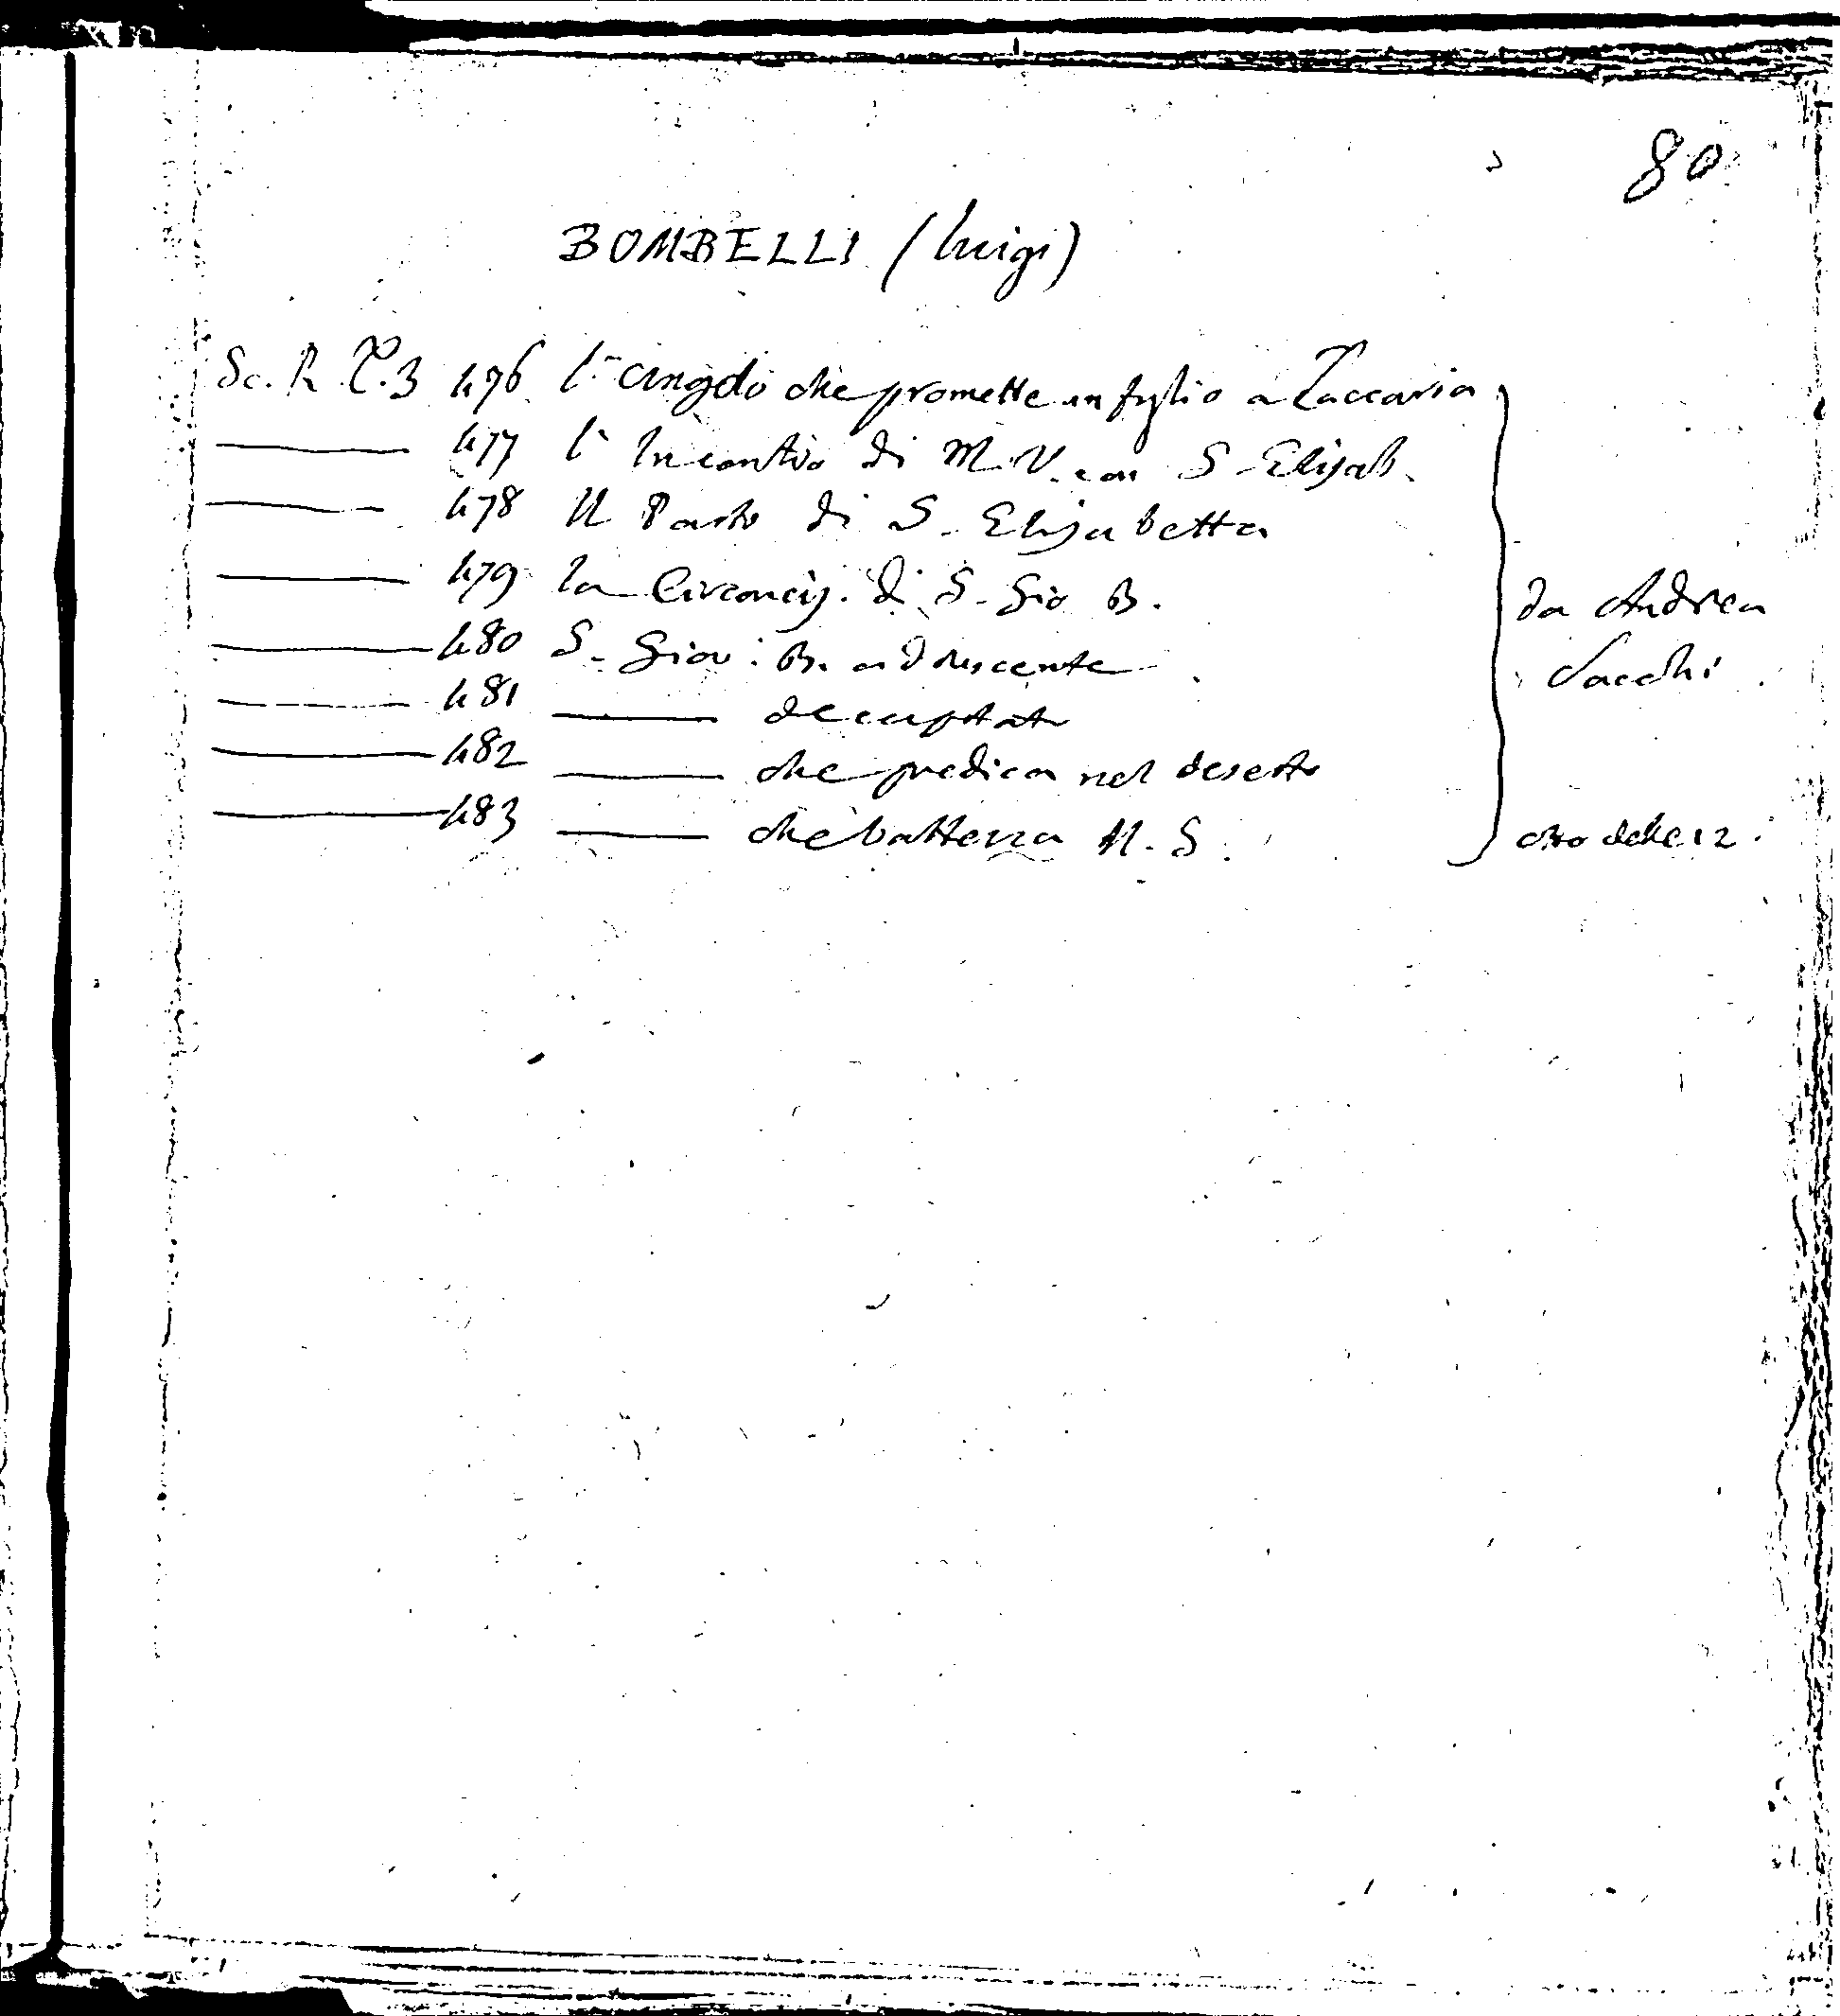 80
BOMBELLI (Luigi)
Sc. R. T. 3 476 l'Angelo che promette un figlio a Zaccaria
477 l'Incontro di M. V. con S. Elisab.
478 Il Parto di S. Elisabetta
479 La Circoncis. di S. Gio B.
480 S. Giov: B. adolescente
481 decapitato
482 che predica nel deserto
483 che battezza N. S.
da Andrea
Sacchi
otto delle 12.